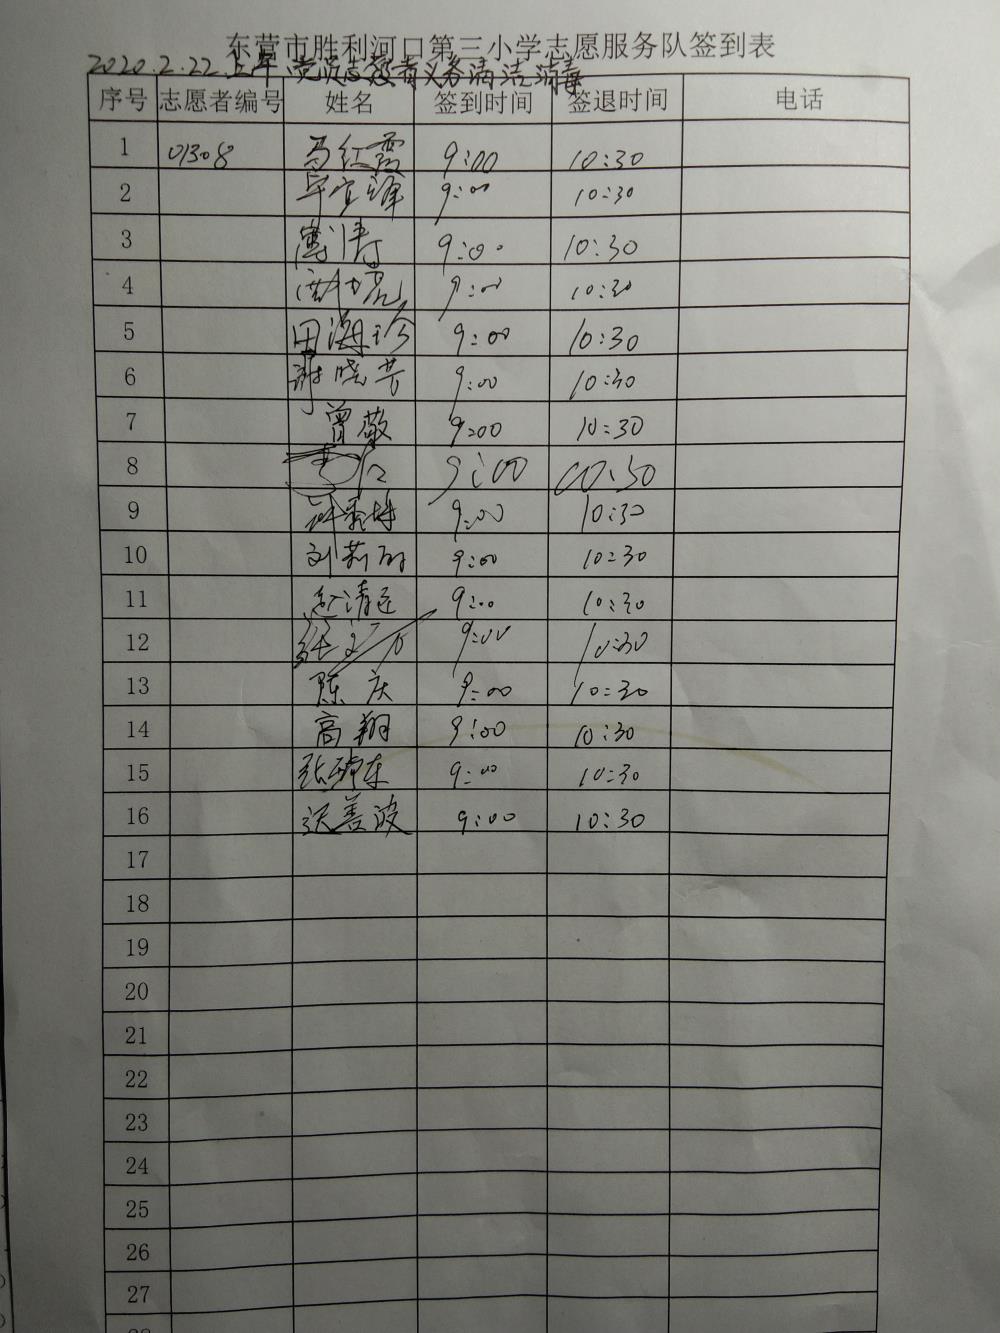 东营市胜利河口第三小学志愿服务队签到表
2020.2.22.上午 党员志愿者义务清洁消毒
序号 志愿者编号 姓名 签到时间 签退时间 电话
1 01308 马红霞 9:00 10:30
2 9:00 10:30
3 9:00 10:30
4 9:00 10:30
5 田海珍 9:00 10:30
6 谢晓芳 9:00 10:30
7 曾敬 9:00 10:30
8 9:00 10:30
9 9:00 10:30
10 刘莉丽 9:00 10:30
11 赵清廷 9:00 10:30
12 9:00 10:30
13 陈庆 9:00 10:30
14 高翔 9:00 10:30
15 9:00 10:30
16 张善波 9:00 10:30
17
18
19
20
21
22
23
24
25
26
27
28